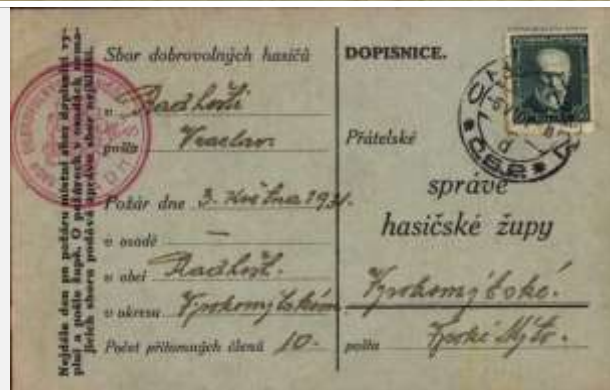 Nejdéle den po požáru místní sbor dopisnici vy-
plní a pošle župě. O požárech v osadách
jiných sborů podává zprávu sbor nejbližší.
Sbor dobrovolných hasičů
v Radhošti
pošta Vraclav
Požár dne 3. května 1931.
v osadě —
v obci Radhošť.
v okresu Vysokomýtském
Počet přítomných členů 10.-
DOPISNICE.
Přátelské
správě
hasičské župy
Vysokomýtské.
pošta Vysoké Mýto.
Č.S.P.